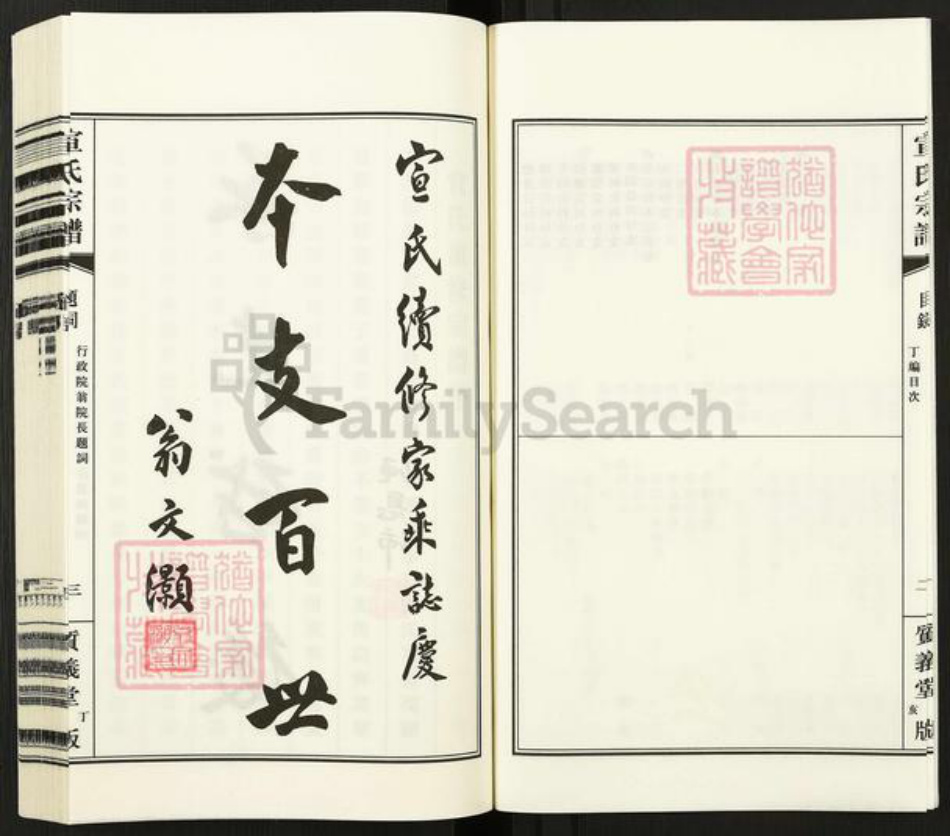 宣氏宗譜
目錄
丁編目次
二
質義堂
版
宣氏續修家乘誌慶
本支百世
翁文灝
宣氏宗譜
題詞
行政院翁院長題詞
三
質義堂
丁
版
譜學會
收藏
FamilySearch